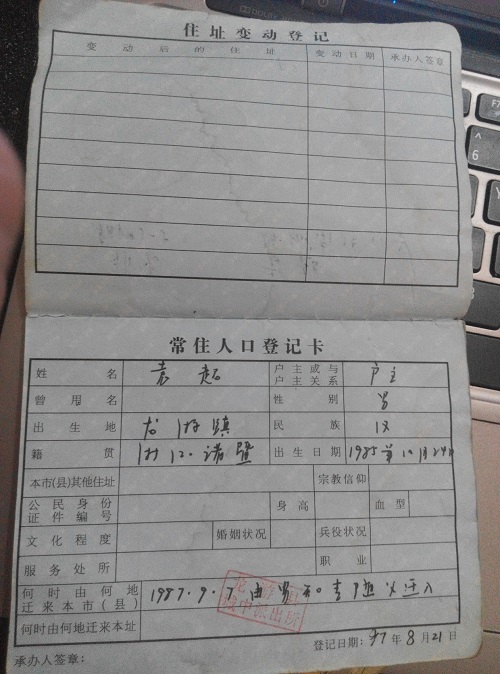 住址变动登记
变动后的住址 变动日期 承办人签章
常住人口登记卡
姓名 袁超 户主或与户主关系 户主
曾用名 性别 男
出生地 龙游镇 民族 汉
籍贯 浙江·诸暨 出生日期 1985年10月24日
本市(县)其他住址 宗教信仰
公民身份证件编号 身高 血型
文化程度 婚姻状况 兵役状况
服务处所 职业
何时由何地迁来本市(县) 1987.9.7 由 迁入
城中派出所
何时由何地迁来本址
登记日期: 97年8月21日
承办人签章:
DOLBY
F7
6